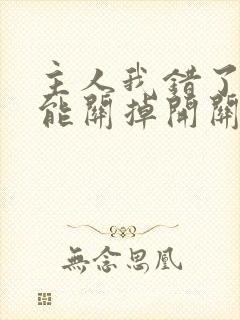 主人我錯了
能關掉開關
無念思凰